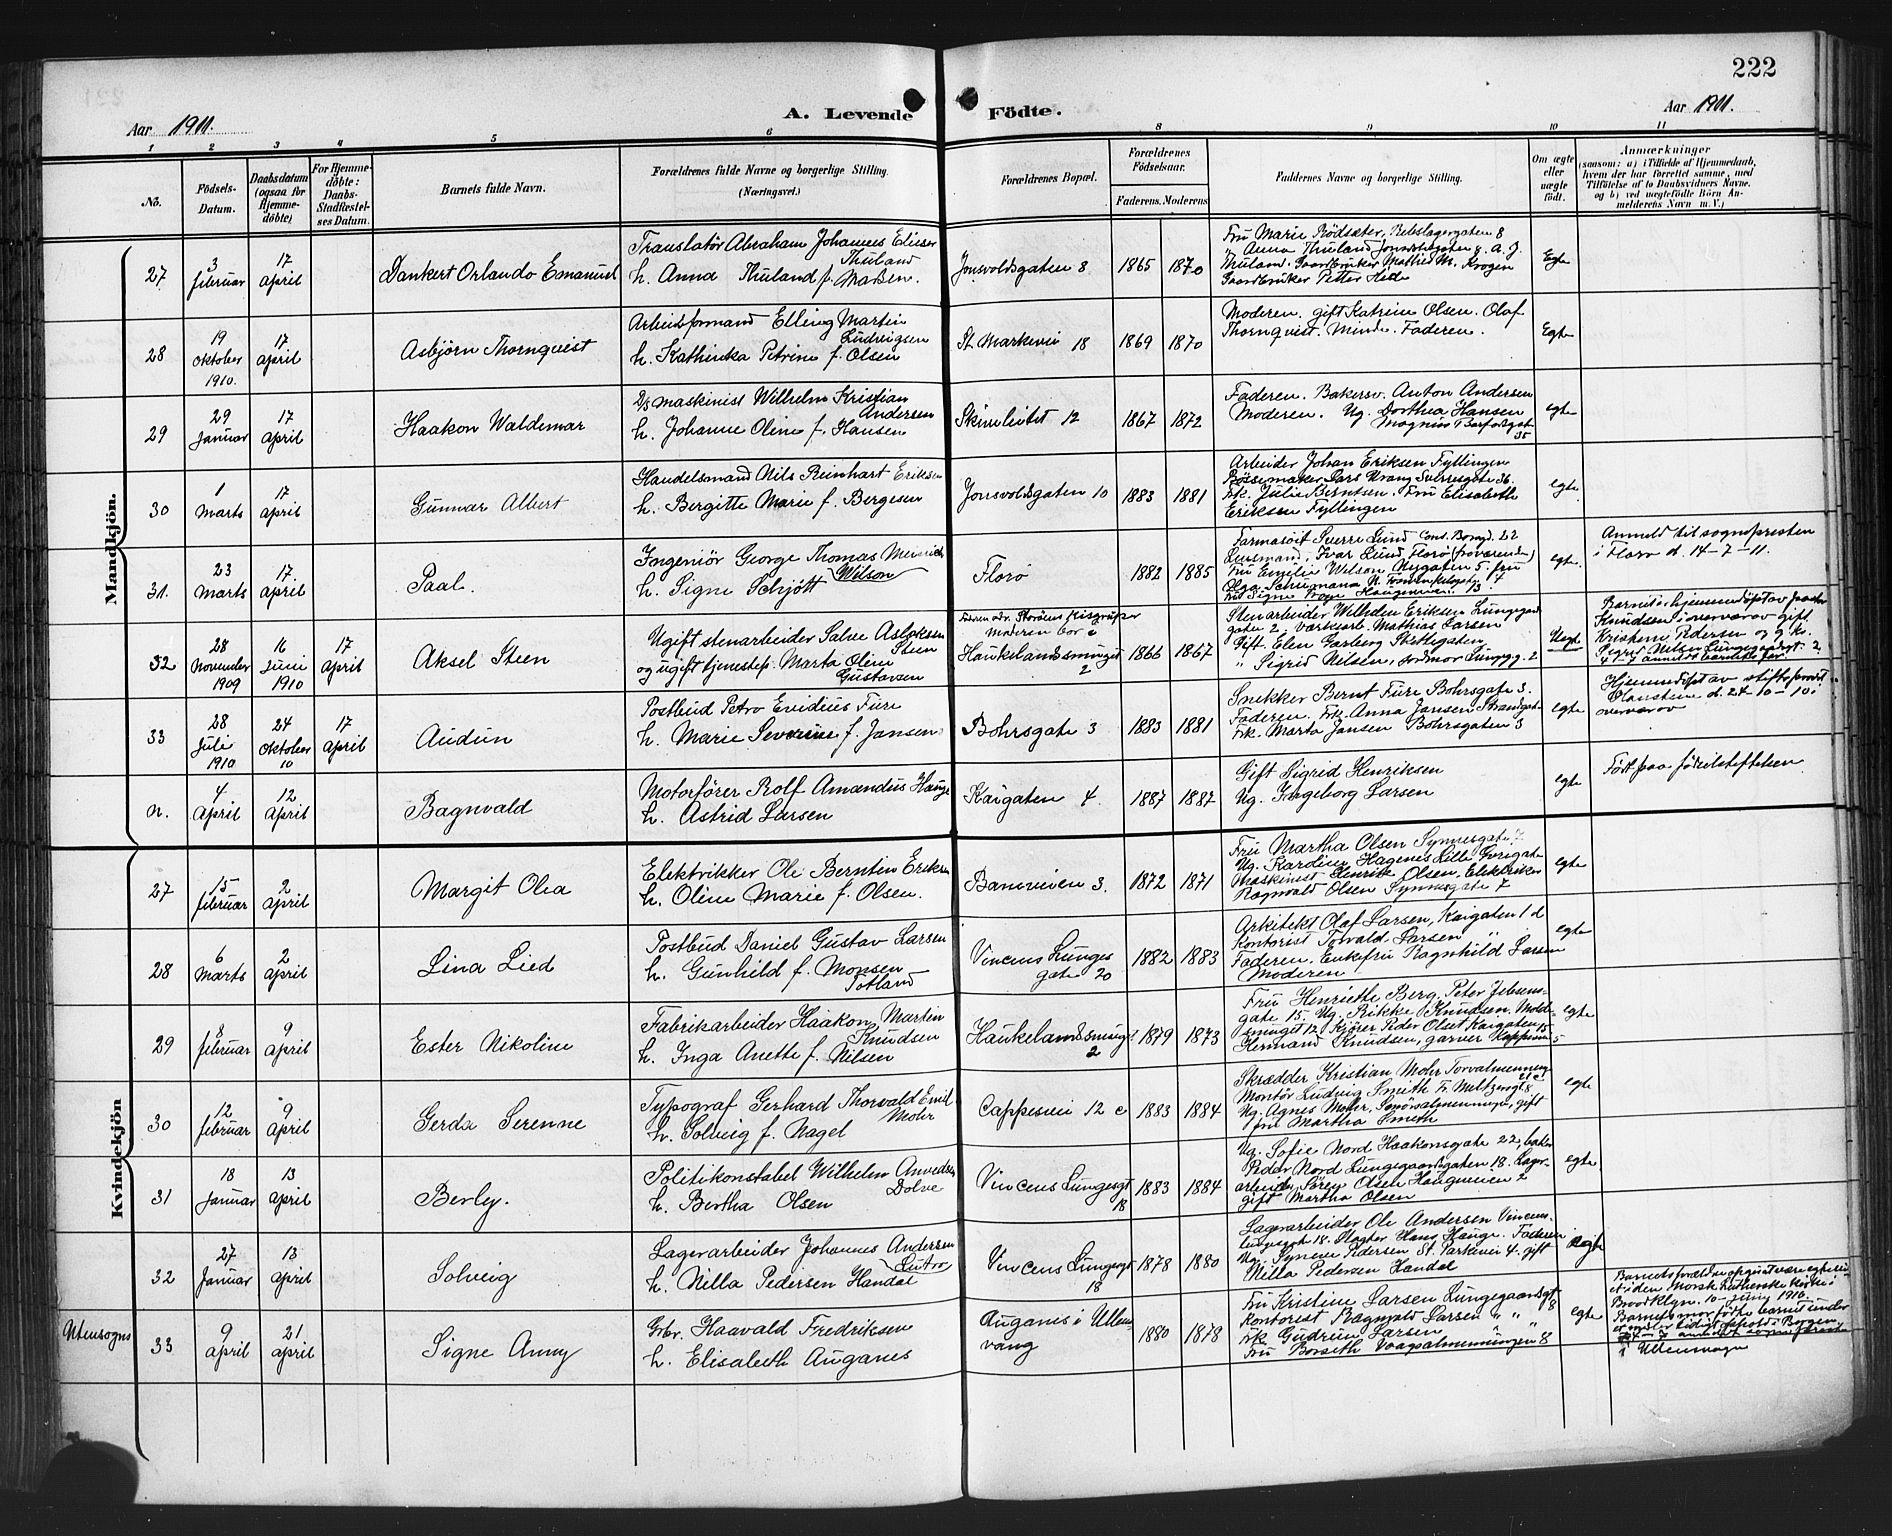 222
Aar 1911.
A. Levende Födte.
Aar 1911.
1 2 3 4 5 6 8 9 10 11
No.
Födsels-Datum.
Daabsdatum (ogsaa for Hjemme-döbte)
For Hjemme-döbte: Daabs-Stadfæstel-ses Datum.
Barnets fulde Navn.
Forældrenes fulde Navne og borgerlige Stilling. (Næringsvei.)
Forældrenes Bopæl.
Forældrenes Födselsaar.
Faderens. Moderens
Faddernes Navne og borgerlige Stilling.
Om ægte eller uægte födt.
Anmærkninger
(saasom: a) i Tilfælde af Hjemmedaab, hvem der har forrettet samme, med Tilföielse af to Daabsvidners Navne. og b) ved uægtefödte Börn An-melderens Navn m. V.)
Mandkjön.
27
3 februar
17 april
Dankert Orlando Emanuel
Translatør Abraham Johannes Elieser Thuland
h. Anna Thuland f. Madsen.
Jonsvoldsgaten 8
1865
1870
Fru Marie Rödseter, Rebslagergaten 8
Anna Thuland Jonsvoldsgaten 8. A. J.
Thulam. Gaardbruker Mathias M. Krogen
Gaardbruker Petter Hede
Egte
28
19 oktober 1910.
17 april
Asbjørn Thornquist
Arbeidsformand Elling Martin Ludvigsen
h. Kathinka Petrine f. Olsen
St. Markevei 18
1869
1870
Moderen. gift Katrine Olsen. Olaf
Thornqvist. Minde. Faderen.
Egte
29
29 Januar
17 April
Haakon Waldemar
D/S maskinist Wilhelm Kristian Andersen
h. Johanne Oline f. Hansen
Skivebeitet 12
1867
1872
Faderen. Bakersv. Anton Andersen
Moderen. Ug. Dorthea Hansen
Magnus Barfodsgat 35
egte
30
1 Marts
17 april
Gunnar Albert
Handelsmand Nils Reinhart Eriksen
h. Bergitte Marie f. Bergesen
Jonsvoldsgaten 10
1883
1881
Arbeider Johan Eriksen Fyllingen
Bössemaker Lars Vrang Sverresgate 36.
Frk. Julie Berntsen. Fru Elisabeth
Eriksen Fyllingen
egte
31.
23 Marts
17 april
Paal.
Ingeniør George Thomas Meinich Wilson
h. Signe Schjött
Florø
1882
1885
Farmasöit Sverre Lund
Lensmand. Ivar Lund Florø (fraværende)
Fru Emilie Wilson Nygaten 5. fru
Olga Schumann
egte.
Anmeld til sognepresten
i Florø d. 14-7-11.
32
28 November 1909
16 Juni 1910
17 April
Aksel Steen
Ugift stenarbeider Salve Aslaksen Steen
og ugift tjenestep. Marta Oline Gustavsen
Moderen bor i
Haukelandssmuget 2
1866
1867
Stenarbeider Wilhelm Eriksen Lungegaard
gaten 2. Værksarb. Mathias Larsen
Gift. Elen Gasberg Skittegaten
" Sigrid Nilsen, jordmor Lungeg. 2
Uegte
Barnet er hjemmedöpt av
Knudsen i overvær av gift
Kristen Pedersen og g. k.
Sigrid Nilsen Lungegaardsgt. 2.
33
28 Juli 1910
24 Oktober 10
17 April
Audun
Postbud Petro Enidius Fure
h. Marie Severine f. Jansen
Bohrsgate 3
1883
1881
Snekker Bernt Fure Bohrsgate 3.
Faderen. Frk. Anna Jansen Strandgate
Frk. Marta Jansen Bohrsgaten 3
egte
Hjemmedöpt av stiftsprovst
d. 24-10-10 i
overvær av
n.
4 April
12 April
Ragnvald
Motorförer Rolf Amandus Hauge
h. Astrid Larsen
Kaigaten 4.
1887
1887
Gift Sigrid Henriksen
Ug. Ingeborg Larsen
egte
Födt paa födselstiftelsen
Kvindekjön
27
15 februar
2 april
Margit Olea
Elektrikker Ole Berntin Eriksen
h. Oline Marie f. Olsen.
Baneveien 3.
1872
1871
Fru Martha Olsen Synnesgate 7
Ug. Kardine Hagenes Lille
Maskinist Henrik Olsen. Elektriker
Ragnvald Olsen Synnesgate 7
egte
28
6 Marts
2 April
Lina Lied
Postbud Daniel Gustav Larsen
h. Gunhild f. Monsen Totland
Vincens Lunges gate 20
1882
1883
Arkitekt Olaf Larsen, Kaigaten 1 d
Kontorist Torvald Larsen "
Faderen. Enkefru Ragnhild Larsen
Moderen
egte
29
8 februar
9 April
Ester Nikoline
Fabrikarbeider Haakon Martin Knudsen
h. Inga Anette f. Nilsen
Haukelandssmuget 2
1879
1873
Fru Henriette Berg. Peter Jebsens-
gate 15. Ug. Rikke Knudsen. Mold-
smuget 12 Kjører Peder Olset Kaigaten 15
Hermand Knudsen, garver Kappevei 5
egte
30
12 februar
9 April
Gerda Serenne
Typograf Gerhard Thorvald Emil Mohr
h. Solveig f. Nagel
Cappesvei 12 c
1883
1884
Skrædder Kristian Mohr Torvalmenning 21 c
Montör Ludvig Smith Fr. Meltzersgt. 8
Ug. Agnes Mohr, Smörsalmenningen, gift
fru Martha Smith
egte
31
18 Januar
13 april
Berly.
Politikonstabel Wilhelm Arvedsen Dolve
h. Bertha Olsen
Vincens Lungesgt 18
1883
1884
Ug. Sofie Nord Haakonsgate 22, baker
Peder Nord Lungegaardsgaten 18. Lager-
arbeider Sören Olsen Haugeveien 2
gift Martha Olsen
egte
32
27 Januar
13 april
Solveig
Lagerarbeider Johannes Andersen
h. Nilla Pedersen Handal
Vincens Lungesgt 18
1878
1880
Lagerarbeider Ole Andersen Vincens
Lungesgt 18. Slagter Hans Hauge. Faderen
Ug. Synneve Pedersen St. Parkvei 4. gift
Nilla Pedersen Handal
egte
Utensogns
33
9 april
21 april
Signe Anny
Grbr. Haavald Fredriksen
h. Elisabeth Auganes
Auganes i Ullens-
vang
1880
1878
Fru Kristine Larsen Lungegaardsgt 8
Kontorist Ragnvald Larsen " " 8
Frk. Gudrun Larsen " "
Fru Borseth Vaagsalmenningen 8
egte
et i den Norsk Lutherske Kirke i
Brooklyn. 10-juny 1910.
Barnets mor födte barnet under
et midler tidigt ophold i Bergen
i Ullensvang